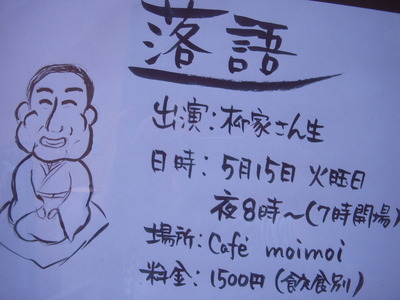 落語
出演:柳家さん生
日時:5月15日 火曜日
夜8時〜(7時開場)
場所:Café moimoi
料金:1500円(飲食別)